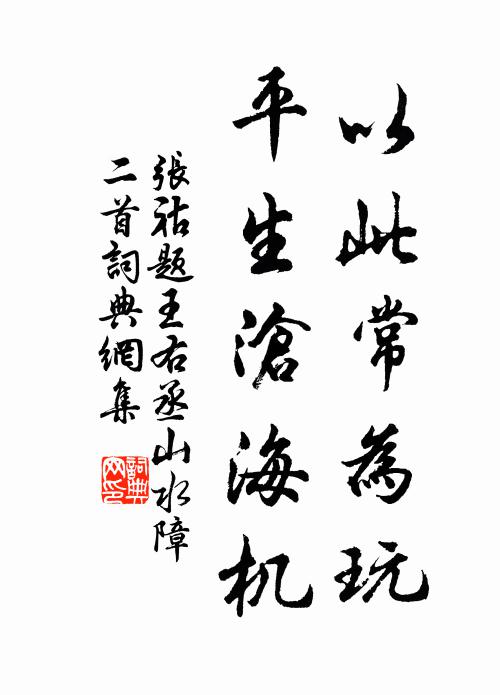 以此常為玩
平生滄海机
張祜題王右丞山水障
二首詞典網集
詞典
网印